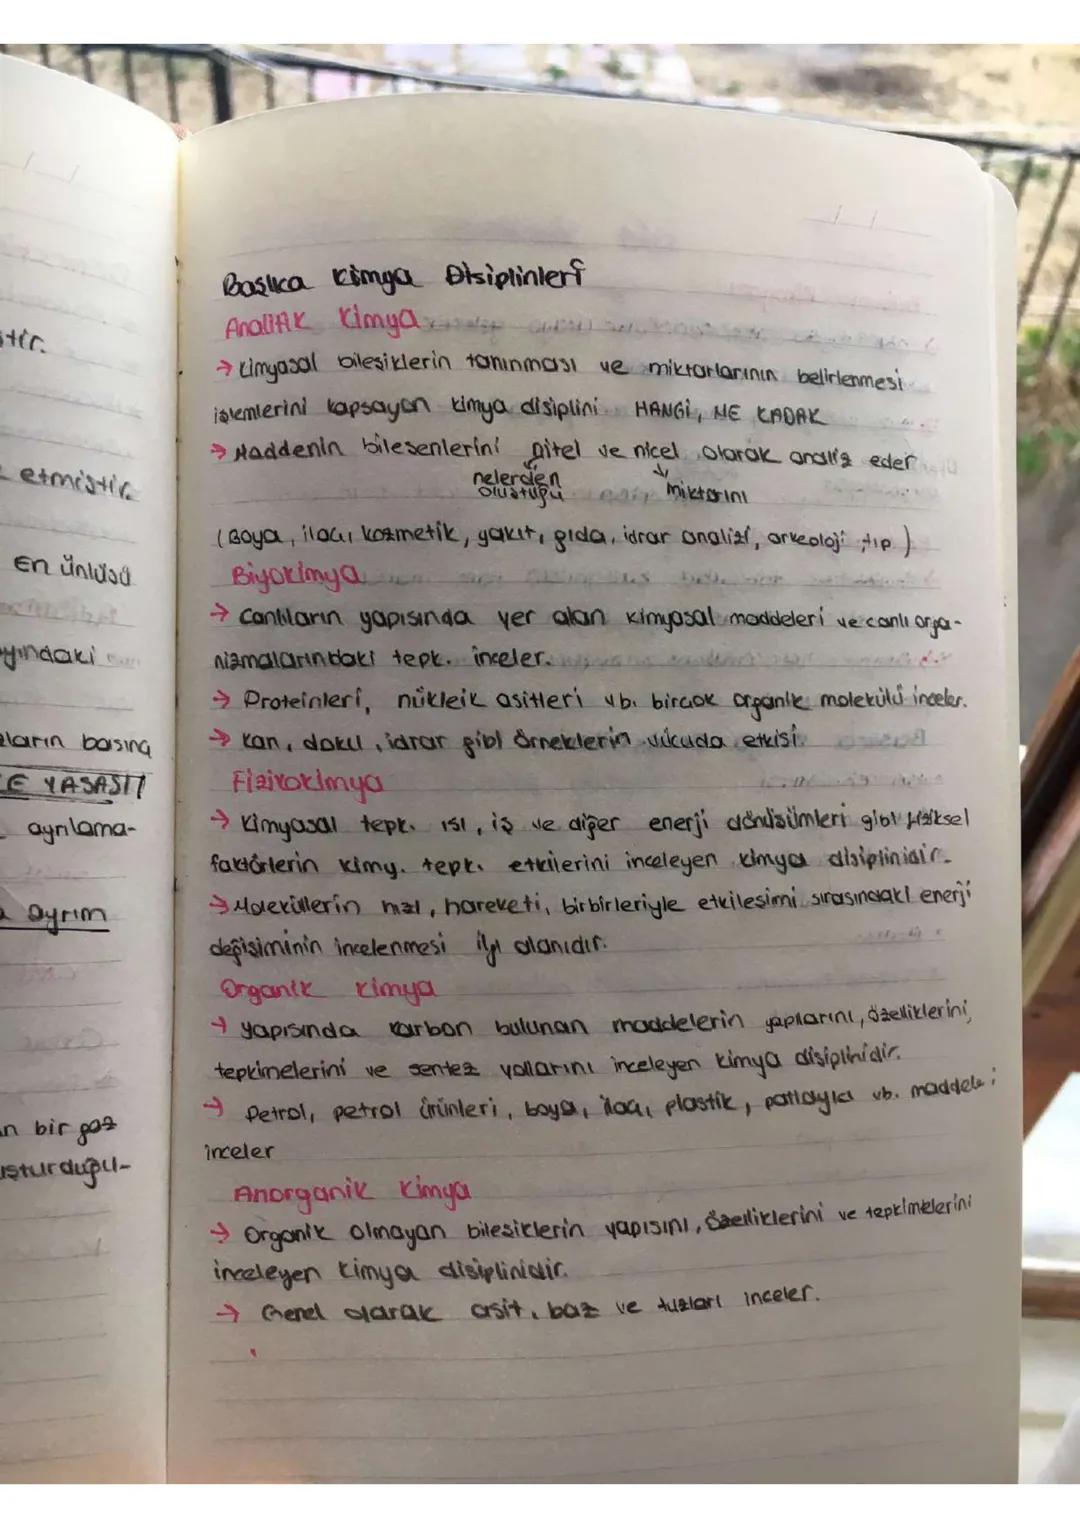 stir.
etmiştir.
En ünlüsü
ayındaki
aların basınç
E YASASI
ayrılama-
ayrım
n bir gaz
uşturduğu-
Başlıca Kimya Disiplinleri
Analitik Kimya
→ Kimyasal bileşiklerin tanınması ve miktarlarının belirlenmesi
işlemlerini kapsayan kimya disiplini HANGİ, NE KADAR
→ Maddenin bileşenlerini nitel ve nicel olarak analiz eder
nelerden
oluştuğu
miktarını
(Boya, ilaç, kozmetik, yakıt, gıda, idrar analizi, arkeoloji, tıp)
Biyokimya
→ Canlıların yapısında yer alan kimyasal maddeleri ve canlı orga-
nizmalarındaki tepk. inceler.
→ Proteinleri, nükleik asitleri vb. birçok organik molekülü inceler.
→ Kan, doku, idrar gibi örneklerin vücuda etkisi.
Fizikokimya
→ Kimyasal tepk. ısı, iş ve diğer enerji dönüşümleri gibi fiziksel
faktörlerin kimy. tepk. etkilerini inceleyen kimya disiplinidir.
→ Moleküllerin hızı, hareketi, birbirleriyle etkileşimi sırasındaki enerji
değişiminin incelenmesi ilgi alanıdır.
Organik Kimya
→ yapısında karbon bulunan maddelerin yapılarını, özelliklerini,
tepkimelerini ve sentez yollarını inceleyen kimya disiplinidir.
→ Petrol, petrol ürünleri, boya, ilaç, plastik, patlayıcı vb. maddeleri
inceler
Anorganik Kimya
→ Organik olmayan bileşiklerin yapısını, özelliklerini ve tepkimelerini
inceleyen kimya disiplinidir.
→ Genel olarak asit, baz ve tuzları inceler.